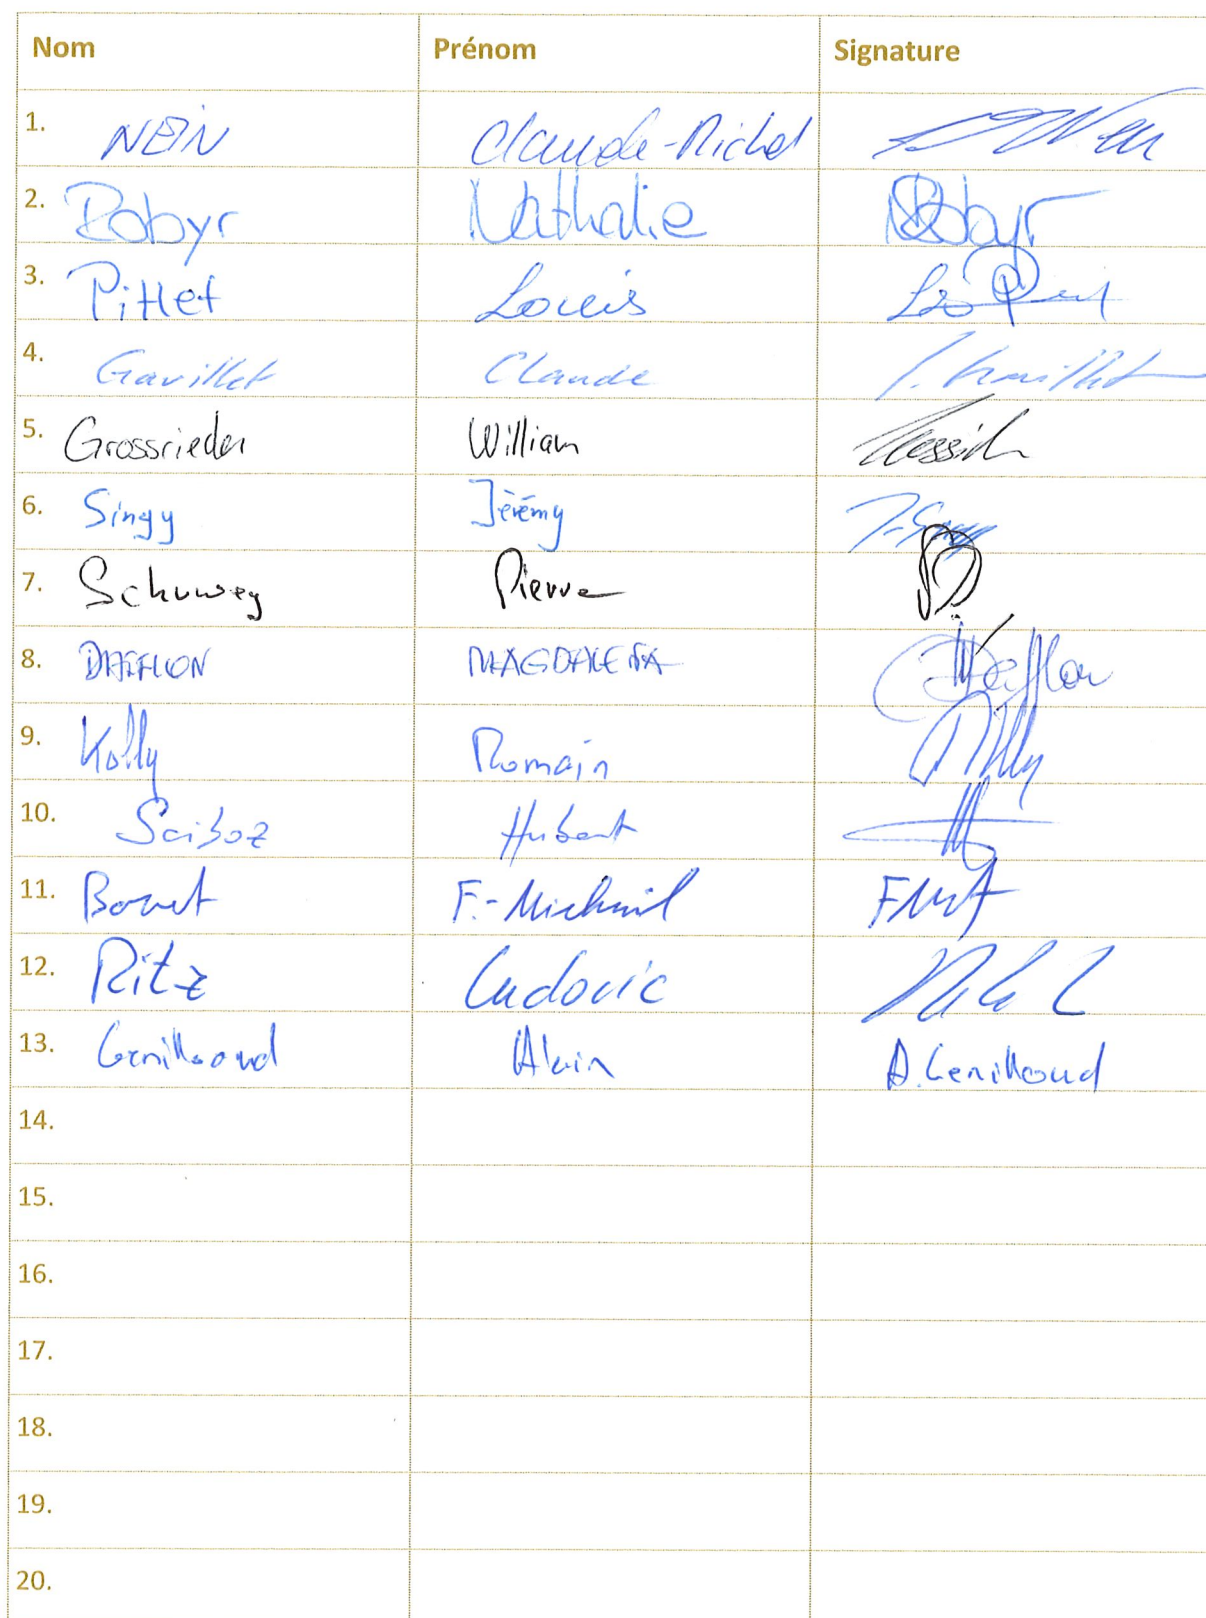 Nom Prénom Signature
1. NEIN Claude-Michel
2. Robyr Nathalie Robyr
3. Pittet Louis
4. Gavillet Claude
5. Grossrieder William
6. Singy Jérémy J. Singy
7. Schuwey Pierre
8. DAFFLON MAGDALENA Dafflon
9. Kolly Romain
10. Sciboz Hubert
11. F.-Michel
12. Ritz Ludovic
13. Genilloud Alain A. Genilloud
14.
15.
16.
17.
18.
19.
20.